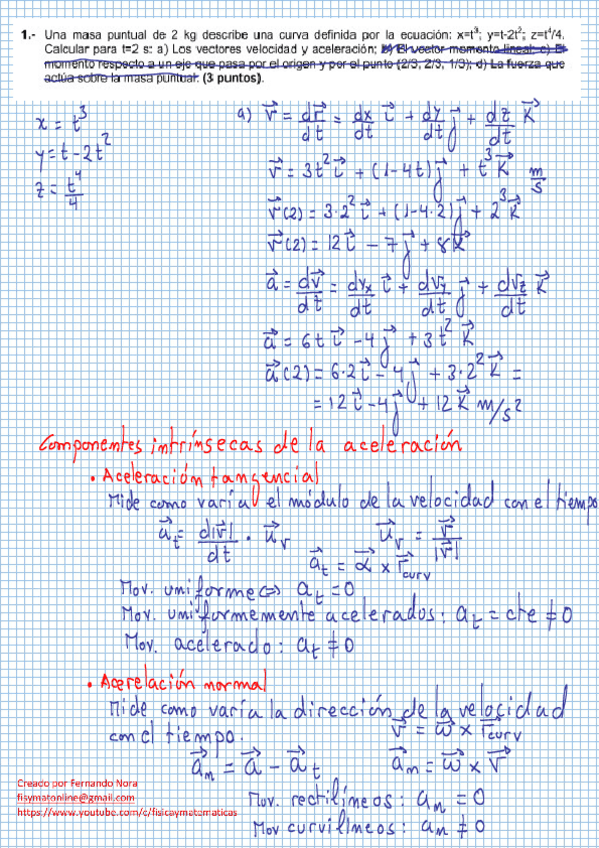 1.- Una masa puntual de 2 kg describe una curva definida por la ecuación: x=t³; y=t-2t²; z=t⁴/4.
Calcular para t=2 s: a) Los vectores velocidad y aceleración; b) El vector momento lineal; c) El
momento respecto a un eje que pasa por el origen y por el punto (2/3, 2/3, 1/3); d) La fuerza que
actúa sobre la masa puntual. (3 puntos).
x = t³
y = t - 2t²
z = t⁴/4
a) v⃗ = dr⃗/dt = dx/dt i⃗ + dy/dt j⃗ + dz/dt k⃗
v⃗ = 3t² i⃗ + (1-4t) j⃗ + t³ k⃗ m/s
v⃗(2) = 3·2² i⃗ + (1-4·2) j⃗ + 2³ k⃗
v⃗(2) = 12 i⃗ - 7 j⃗ + 8 k⃗
a⃗ = dv⃗/dt = dvx/dt i⃗ + dvy/dt j⃗ + dvz/dt k⃗
a⃗ = 6t i⃗ - 4 j⃗ + 3t² k⃗
a⃗(2) = 6·2 i⃗ - 4 j⃗ + 3·2² k⃗ =
= 12 i⃗ - 4 j⃗ + 12 k⃗ m/s²
Componentes intrínsecas de la aceleración
• Aceleración tangencial
Mide como varía el módulo de la velocidad con el tiempo
a⃗t = d|v⃗|/dt · u⃗v u⃗v = v⃗/|v⃗|
a⃗t = α⃗ × r⃗curv
Mov. uniforme ⇔ at = 0
Mov. uniformemente acelerados: at = cte ≠ 0
Mov. acelerado: at ≠ 0
• Acerelación normal
Mide como varía la dirección de la velocidad
con el tiempo. v⃗ = ω⃗ × r⃗curv
a⃗n = a⃗ - a⃗t a⃗n = ω⃗ × v⃗
Mov. rectilíneos: an = 0
Mov curvilíneos: an ≠ 0
Creado por Fernando Nora
fisymatonline@gmail.com
https://www.youtube.com/c/fisicaymatematicas